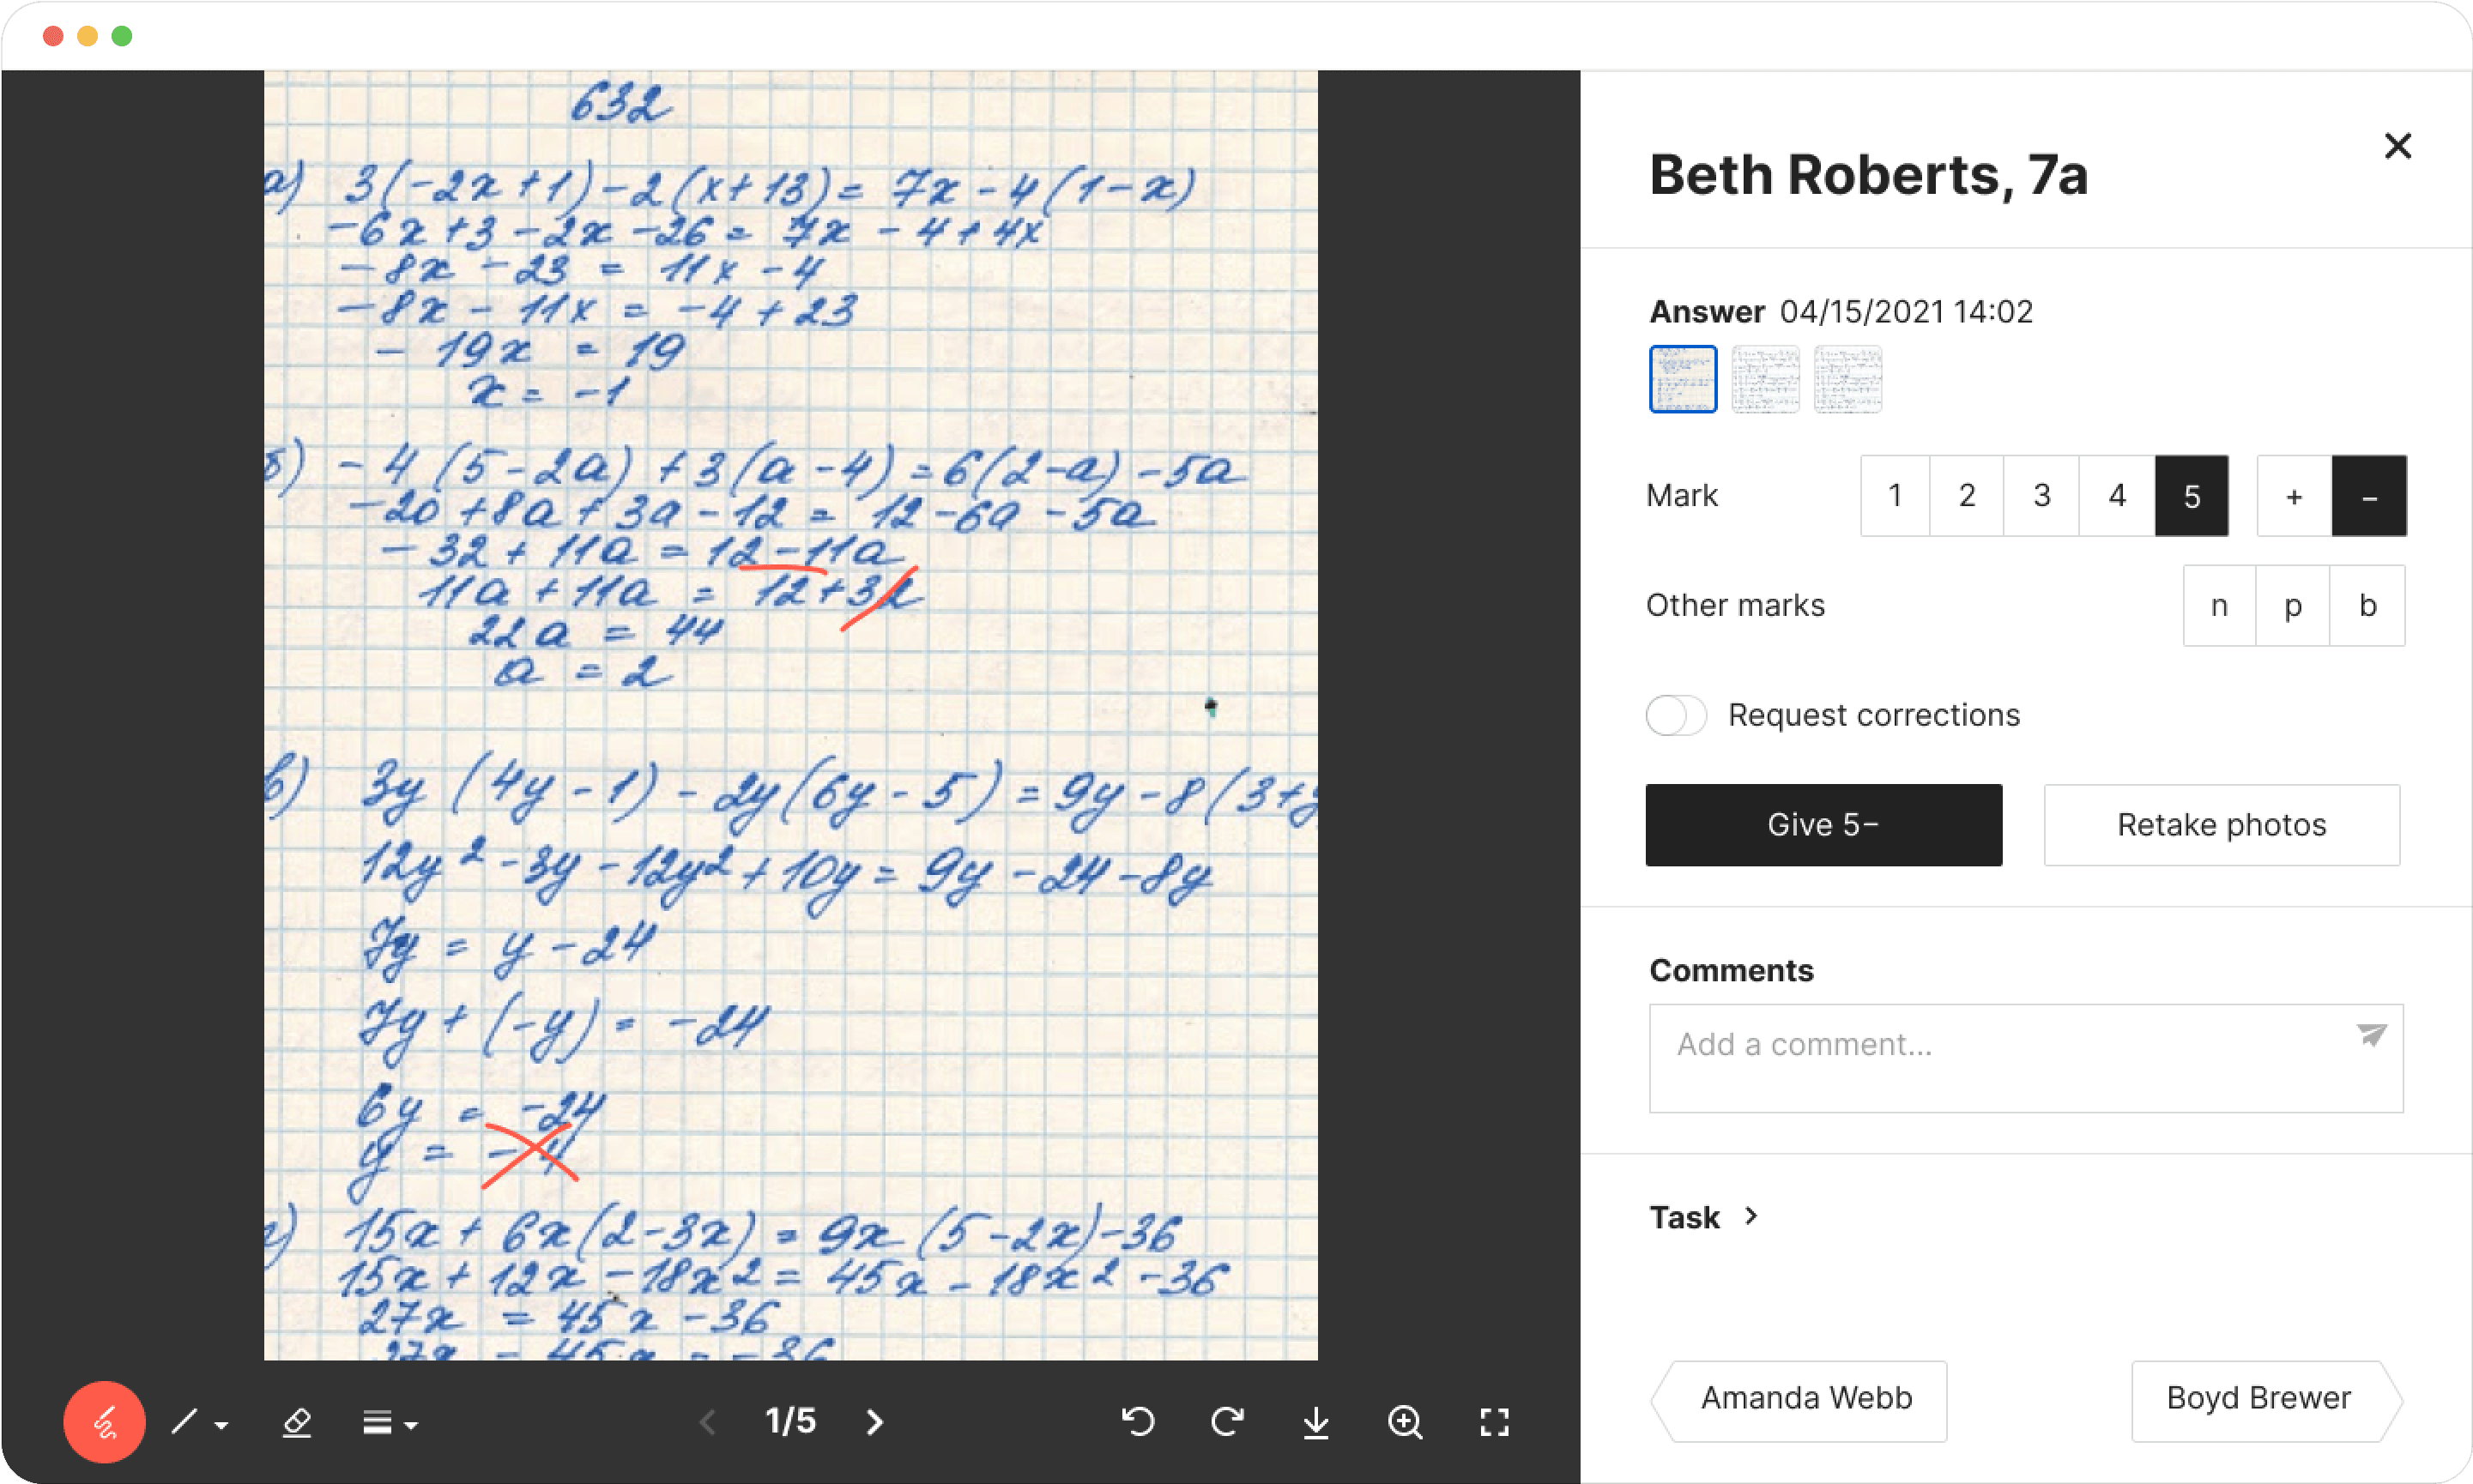 632
а) 3(-2x+1)-2(x+13)= 7x-4(1-x)
-6x+3-2x-26= 7x-4+4x
-8x-23 = 11x-4
-8x-11x = -4+23
-19x = 19
x = -1
б) -4(5-2a)+3(a-4)=6(2-a)-5a
-20+8a+3a-12= 12-6a-5a
-32+11a = 12-11a
11a+11a = 12+32
22a = 44
a = 2
в) 3y(4y-1)-2y(6y-5)=9y-8(3+y
12y²-3y-12y²+10y= 9y-24-8y
7y = y-24
7y+(-y)= -24
6y = -24
y = -4
г) 15x+6x(2-3x)= 9x(5-2x)-36
15x+12x-18x²= 45x-18x²-36
27x = 45x-36
27x - 45x = -36
1/5
Beth Roberts, 7a
Answer 04/15/2021 14:02
Mark 1 2 3 4 5 + −
Other marks n p b
Request corrections
Give 5− Retake photos
Comments
Add a comment...
Task
Amanda Webb Boyd Brewer